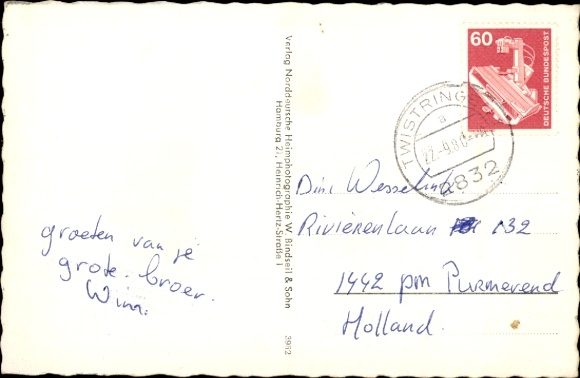 60
DEUTSCHE BUNDESPOST
TWISTRINGEN
a
22.-9.80
2832
Verlag Norddeutsche Heimphotographie W. Bindseil & Sohn
Hamburg 21, Heinrich-Hertz-Straße 1
3952
groeten van je
grote broer.
Wim.
Dini Wesseling
Rivièrenlaan 132
1442 pm Purmerend
Holland.